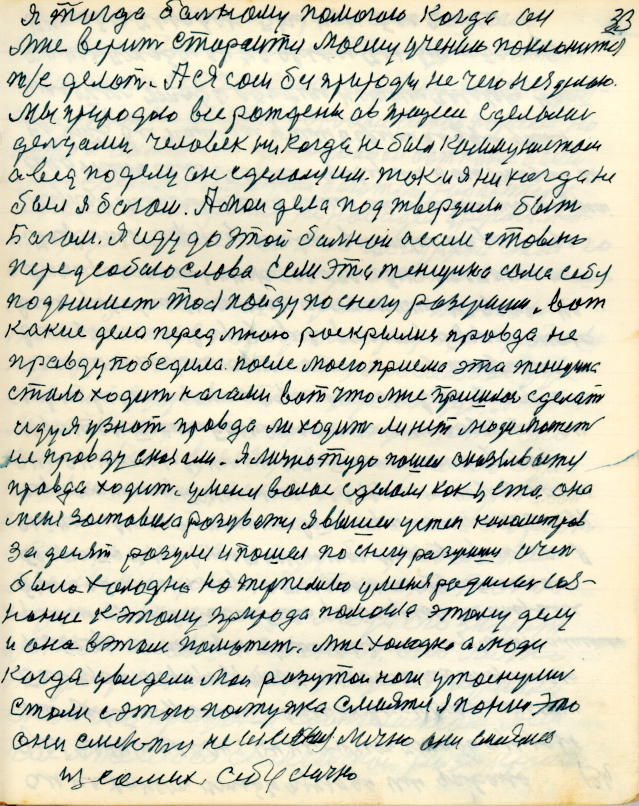 33
Я тогда больному помогаю когда он
мне верит старается моему учению поклонится
т/е делат. А я сам без природы не чего не зделаю.
Мы природою все рождены ов процеси сделались
делцами человек никогда не был комунистом
авед по делу он сделался им. так и я никогда не
был я богом. А мои дела подтвердили быт
Богом. Я иду до этой болной а сам ставлю
перед собою слова если эта женщина сама себя
поднимет то я пойду по снегу разувши. вот
какие дела передмною раскрылис правда не
правду победила. после моего приема эта женщина
стала ходит ногами вот что мне пришлос сделат
иду я узнат правда ли ходит ли нет люди может
не правду сказали. Я лично туда пошел оказывается
правда ходит. у меня волос сделался как у ета. она
меня заставила разуватся я вышел устеп километров
за девят разулся и пошел по снегу разувши очен
было холодно но терпеливо у меня радилас соз-
нание к этому природа помогла этому делу
и она вэтом поможет. мне холодно а люди
когда увидели мои разутои ноги утоснулис
стали с этого поступка смеятся я понял это
они смеются не с меня лично они смеялис
из самих себя лично